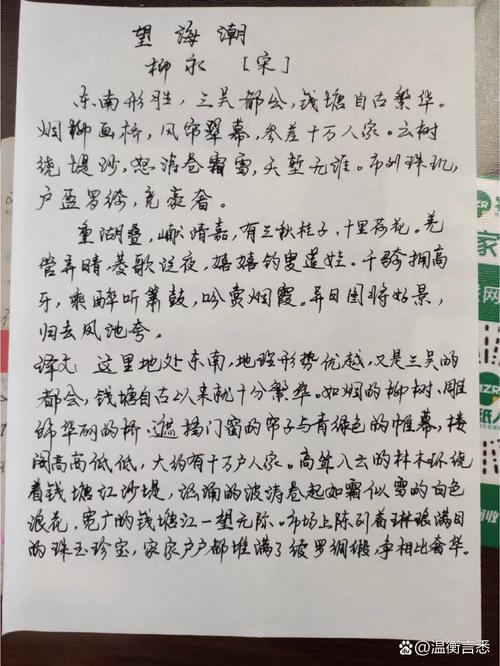 望海潮
柳永 [宋]
东南形胜，三吴都会，钱塘自古繁华。
烟柳画桥，风帘翠幕，参差十万人家。云树
绕堤沙，怒涛卷霜雪，天堑无涯。市列珠玑，
户盈罗绮，竞豪奢。
重湖叠，巘清嘉，有三秋桂子，十里荷花。羌
管弄晴，菱歌泛夜，嬉嬉钓叟莲娃。千骑拥高
牙，乘醉听箫鼓，吟赏烟霞。异日图将好景，
归去凤池夸。
译文 这里地处东南，地理形势优越，又是三吴的
都会，钱塘自古以来就十分繁华。如烟的柳树、雕
饰华丽的桥，遮挡门窗的帘子与青绿色的帷幕，楼
阁高高低低，大约有十万户人家。高耸入云的林木环绕
着钱塘江沙堤，汹涌的波涛卷起如霜似雪的白色
浪花，宽广的钱塘江一望无际。市场上陈列着琳琅满目
的珠玉珍宝，家家户户都堆满了绫罗绸缎，争相比奢华。
家
网
纸
回收
头条 @温衡言悉